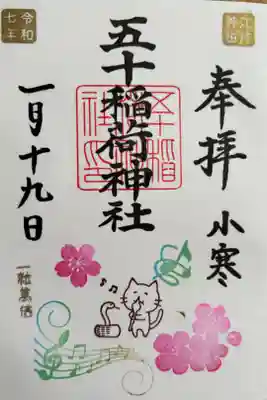 奉拝
小寒
五十稲荷神社
一月十九日
令和
七年
一粒萬倍